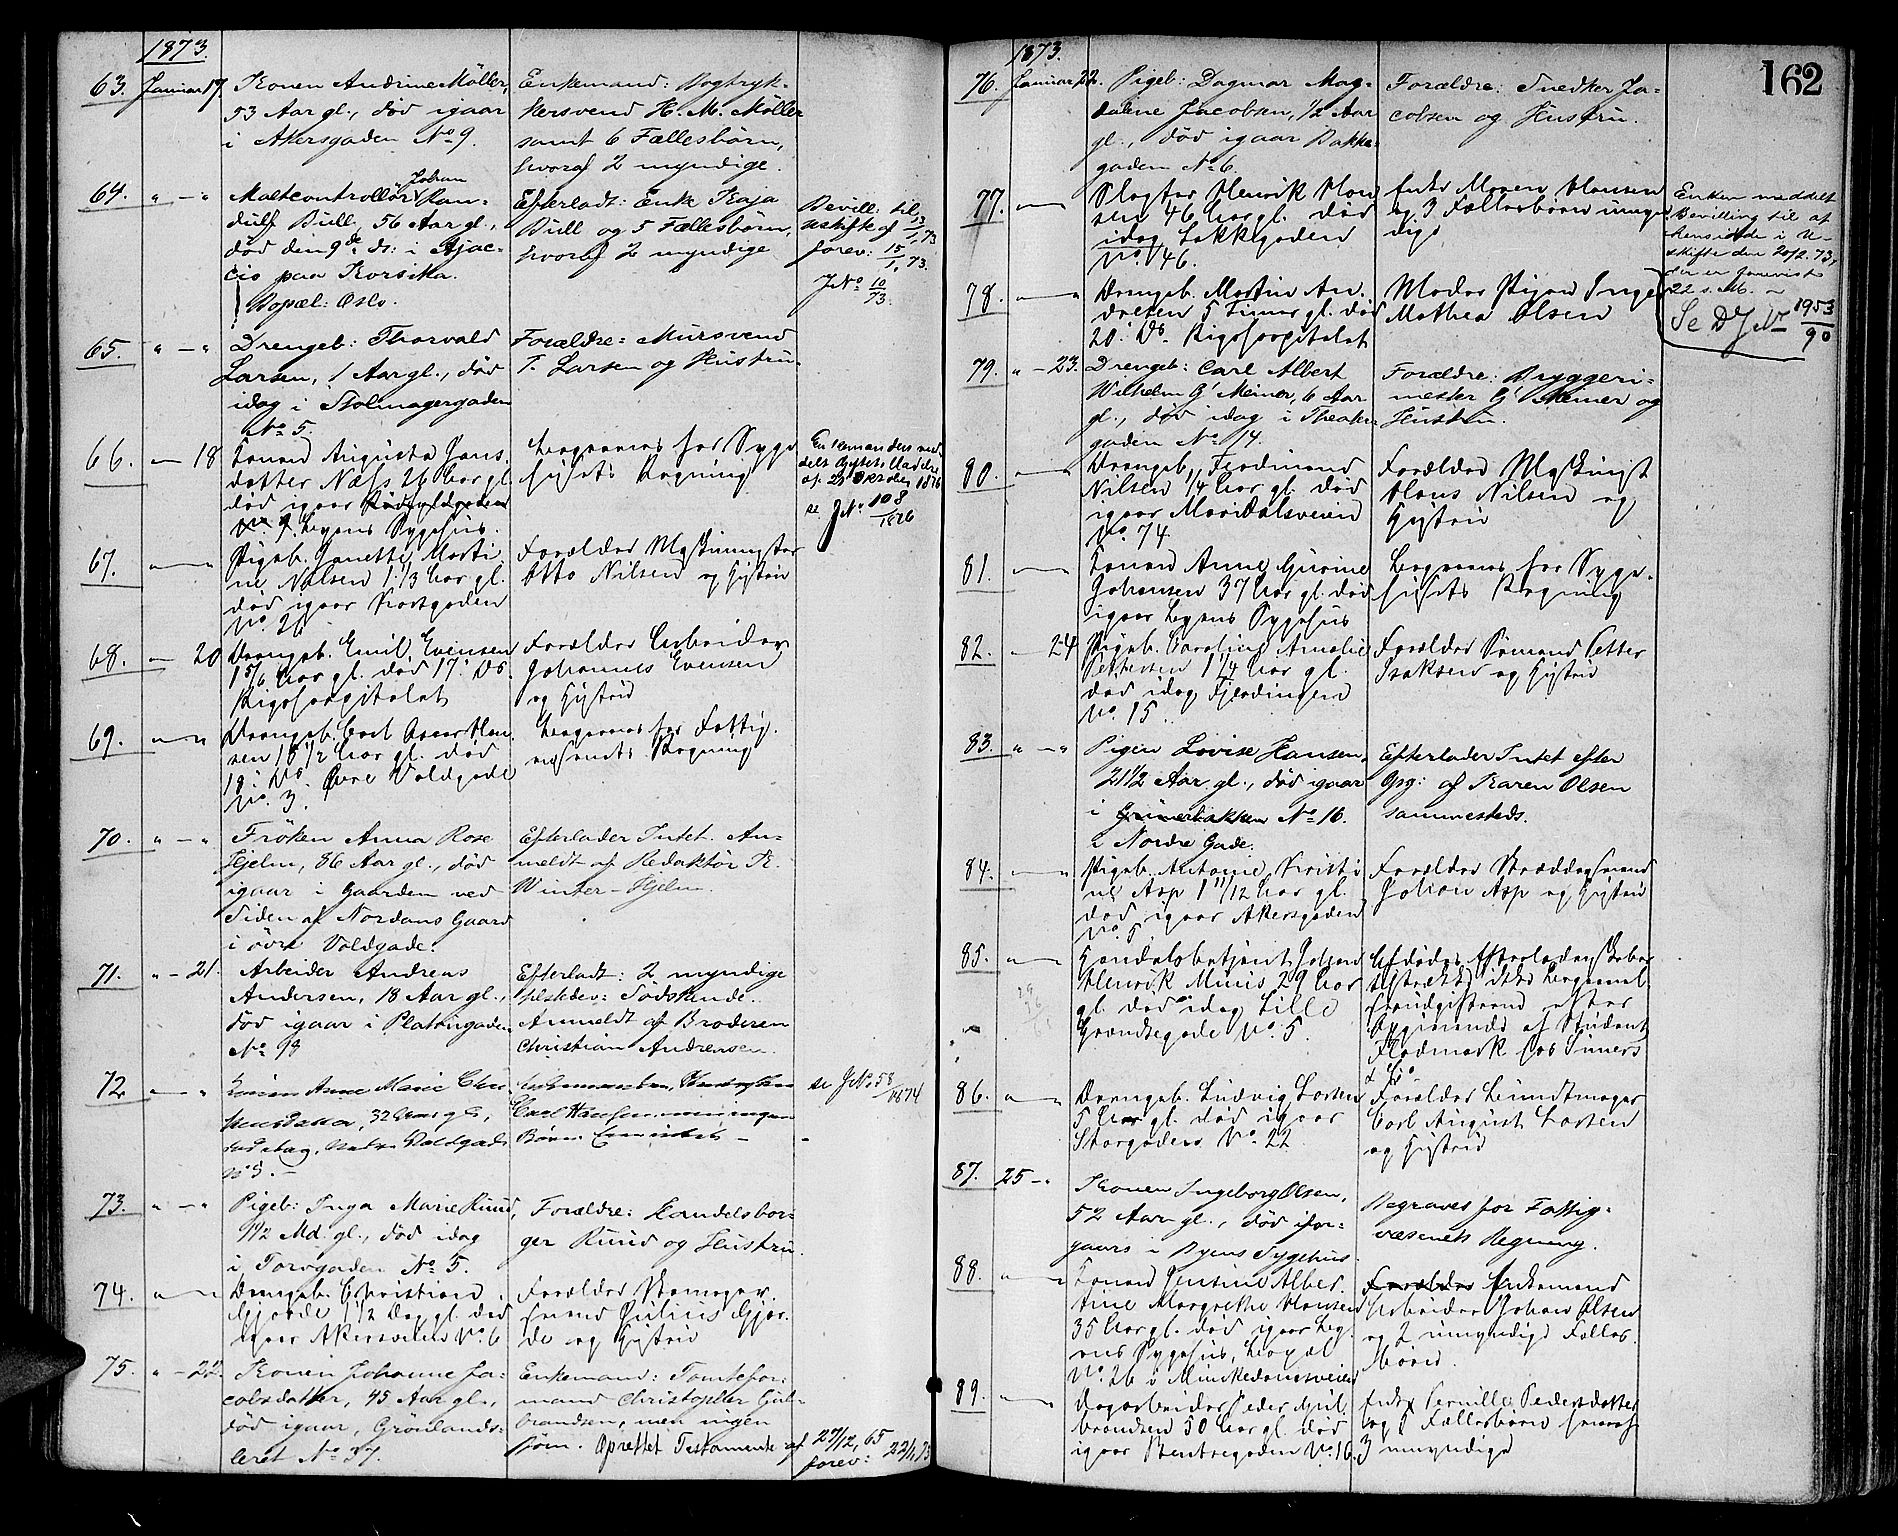 1873.
63. Januar 17. Konen Andrine Möller,
53 Aar gl., död igaar
i Akersgaden No 9.
Enkemand: Bogtryk-
kersvend H. M. Möller
samt 6 Fællesbörn,
hvoraf 2 myndige.
64. " - " Maltcontrollör Johan Ran-
dulf Bull, 56 Aar gl.,
död den 9de ds: i Ajac-
cio paa Korsika.
Bopæl: Oslo.
Efterladt: Enke Kaja
Bull og 5 Fællesbörn,
hvoraf 2 myndige
Bevill: til
uskifte af 13/1, 73
forev: 15/1, 73.
JNo 10/73.
65. " - " Drengeb: Thorvald
Larsen, 1 Aar gl., död
idag i Stolmagergaden
No 5.
Forældre: Mursvend
T. Larsen og Hustru.
66. " - 18 Konen Augusta Jans-
datter Næss 26 Aar gl.
död igaar
Byens Sygehus.
Begraves for Syge-
husets Regning
JNo 108/1876
67. Pigeb. Janette Marti-
ne Nilsen 1 1/3 Aar gl.
död igaar
No. 26
Forældre
Otto Nilsen og Hustru
68. " - 20 Drengeb. Emil Evensen
1 5/6 Aar gl. död 17. ds.
Rigshospitalet
Forældre Arbeider
Johannes Evensen
og Hustru
69. Drengeb. Carl Oscar Han-
sen 10 1/2 Aar gl. död
18. ds. Övre Voldgade
No. 3.
Begraves for Fattig-
væsenets Regning
70. " - " Fröken Anna Rose
Hjelm, 86 Aar gl., död
igaar i Gaarden ved
Siden af Nordans Gaard
i övre Voldgade.
Efterlader Intet. An-
meldt af Redaktör K.
Winter-Hjelm.
71. " - 21. Arbeider Andreas
Andersen, 18 Aar gl.,
död igaar i Platougaden
No 98
Efterladt: 2 myndige
Södskende.
Anmeldt af Broderen
Christian Andreasen.
72. " - " Konen Anne Marie Chri-
stensdatter, 32 Aar gl.,
död idag, Nedre Voldgade
No 5.
Carl Hansen men ingen
Börn
se JNo 58/1874
73. " - " Pigeb: Inga Marie Ruud,
9 1/2 Md. gl., död idag
i Torvgaden No 5.
Forældre: Handelsbor-
ger Ruud og Hustru.
74. Drengeb. Christian
Gjerde 1 1/2 Dag gl. död
igaar Akersveien No. 6
Forældre Skomager-
svend Julius Gjer-
de og Hustru
75. " - 22. Konen Johanne Ja-
cobsdatter, 45 Aar gl.,
död igaar, Grönlands-
leret No 37.
Enkemand: Tomtefor-
mand Christopher Gul-
brandsen, men ingen
Börn. Oprettet Testamente af 27/12, 65
forev: 22/1, 73
162
1873.
76. Januar 22. Pigeb: Dagmar Mag-
dalene Jacobsen, 1/2 Aar
gl., död igaar Bakke-
gaden No 6.
Forældre: Snedker Ja-
cobsen og Hustru.
77. Slagter Henrik Han-
sen 46 Aar gl. död
idag Bakkegaden
No. 46.
Enke Maren Hansen
og 3 Fællesbörn umyn-
dige
Enken meddelt
Bevilling til at
hensidde i U-
skifte den 20/2. 73,
der er forevist
22 s. M.
Se D J No 1953/90
78. Drengeb. Martin An-
dresen 5 Timer gl. död
20. ds. Rigshospitalet
Moder Pigen Inge
Mathea Olsen
79. " - 23. Drengeb: Carl Albert
Wilhelm G. Meiner, 6 Aar
gl., död idag i Theater-
gaden No 14.
Forældre: Bryggeri-
mester G. Meiner og
Hustru.
80. Drengeb. Ferdinand
Nilsen 1/4 Aar gl. död
igaar Maridalsveien
No. 74.
Forældre
Hans Nilsen og
Hustru
81. Konen Anne Gurine
Johansen 37 Aar gl. död
igaar Byens Sygehus
Begraves for Syge-
husets Regning
82. " - 24 Pigeb. Caroline Amalie
Pettersen 1 1/4 Aar gl.
död idag Fjerdingen
No. 15.
Forældre Sömand Petter
Isaksen og Hustru
83. " - " Pigen Lovise Hansen,
21 1/2 Aar gl., död igaar
i Grünerløkken No 16.
2 Nordre Gade.
Efterlader Intet efter
Opg: af Karen Olsen
sammesteds.
84. Pigeb. Antonie Kristi-
ne Asp 1 11/12 Aar gl.
död igaar Akersgaden
No. 5
Forældre Skræddersvend
Johan Asp og Hustru
85. Handelsbetjent Johan
Henrik Minis 29 Aar
gl. död idag Lille
Grændsegade No. 5.
Opgivende af Student
Flodmark hos Siuers
& Co
86. Drengeb. Ludvig Larsen
5 Aar gl. död igaar
Storgaden No. 22.
Forældre Buntmager
Carl August Larsen
og Hustru
87. 25 - " Konen Ingeborg Olsen,
52 Aar gl., död ifor-
gaars i Byens Sygehus.
Begraves for Fattig-
væsenets Regning.
88. Konen Jensine Alber-
tine Margrethe Hansen
35 Aar gl. död igaar By-
ens Sygehus, Bopæl
No. 26 i Munkedamsveien
Forældre Enkemand
Arbeider Johan Olsen
og 2 umyndige Fælles-
börn.
89. Dagarbeider Peder Gul-
brandsen 50 Aar gl. död
igaar Bentsegaden No. 16.
Enke Pernille Pedersdatter
Fællesbörn hvoraf
3 umyndige